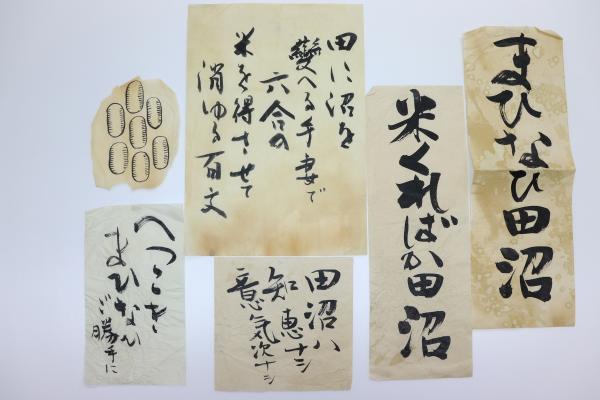 まひなひ田沼
米くればか田沼
田に沼を
變へる手妻で
六合の
米を得させて
消ゆる百文
田沼ハ
知恵ナシ
意気次ナシ
へつこき
まひなひ
ご勝手に